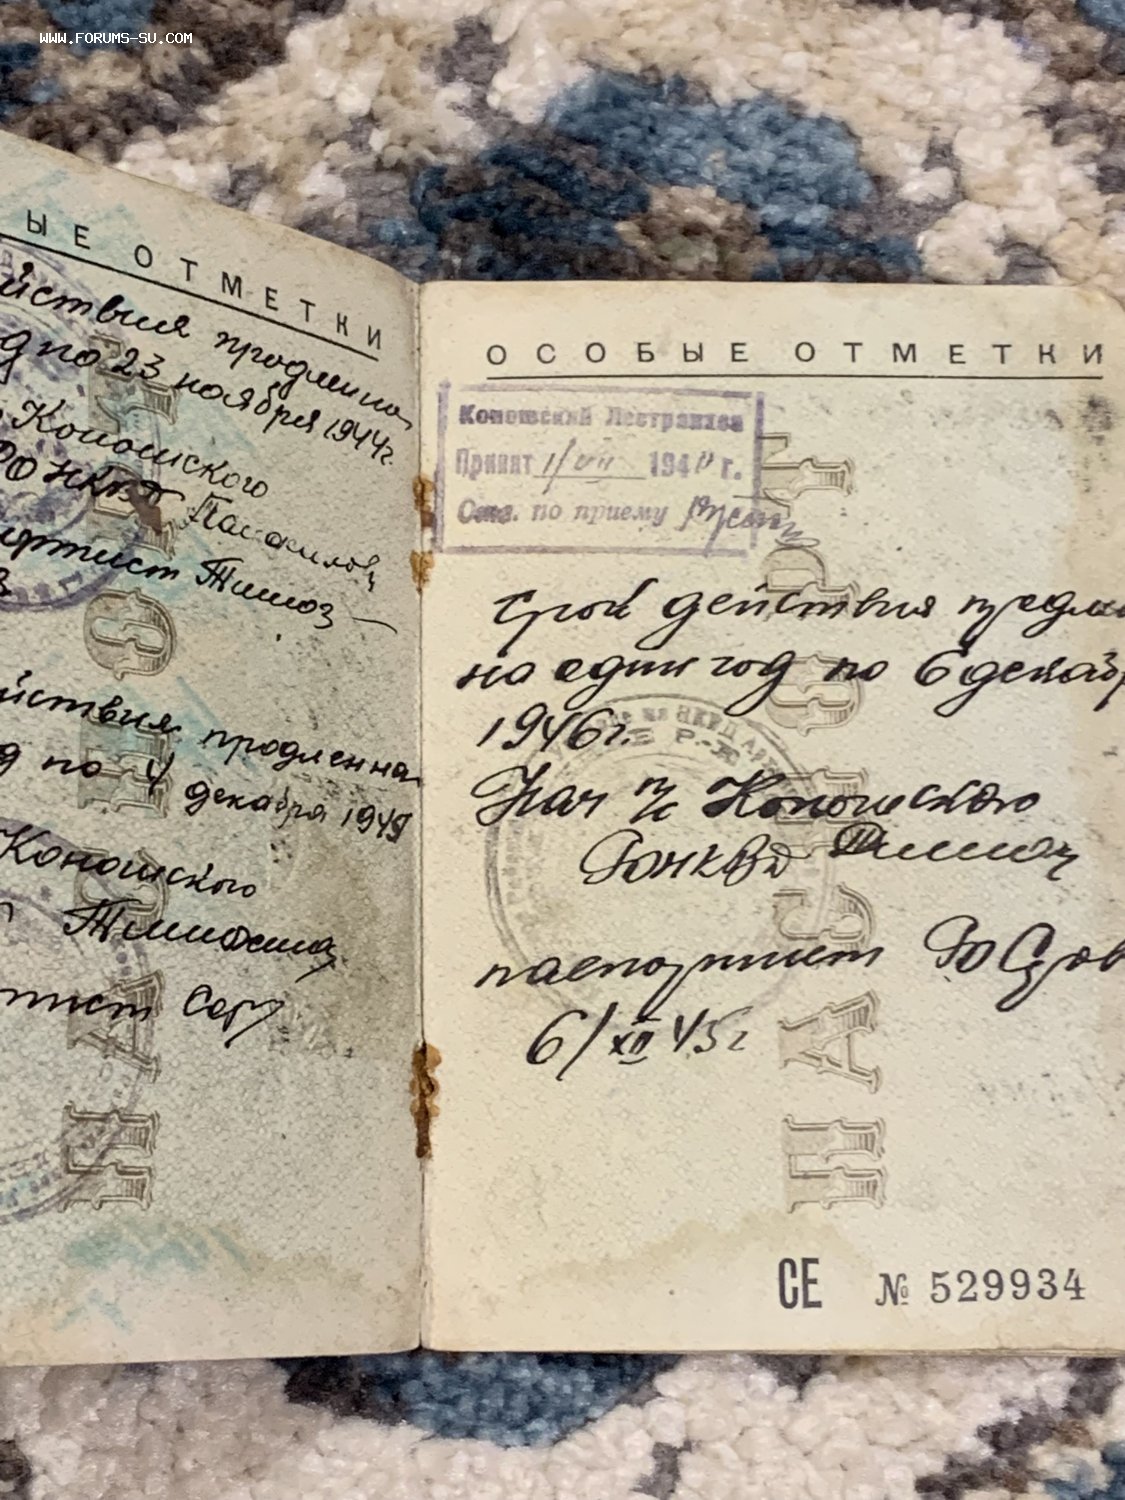 WWW.FORUMS-SU.COM
ЫЕ ОТМЕТКИ
йствия продлена
д по 23 ноября 1944г.
Коношского
РО НКВД
Тимоз
йствия продленна
д по 4 декабря 1949
Коношского
ОСОБЫЕ ОТМЕТКИ
Коношский Лестранхоз
Принят 1/VII 1940 г.
Отв. по приему
Срок действия продле
на один год по 6 декабр
1946г.
Нач п/с Коношского
РОНКВД
паспортист
6/XII 45г
СЕ № 529934
ПАСПОРТ
ПАСПОРТ